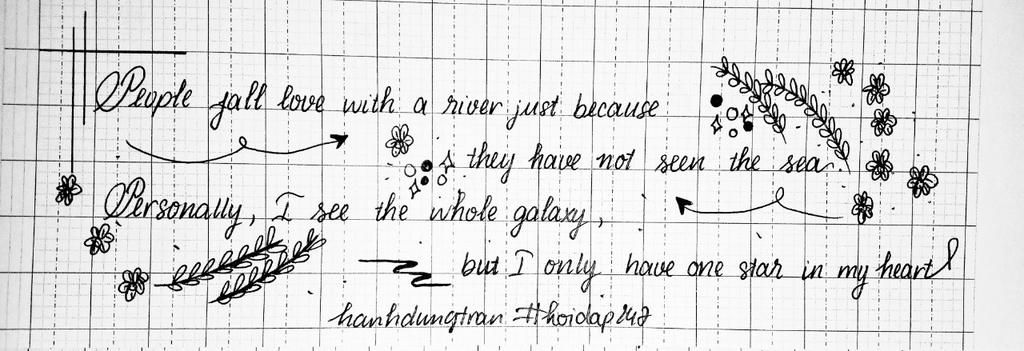 People fall love with a river just because
they have not seen the sea
Personally, I see the whole galaxy,
but I only have one star in my heart
hanhdungtran #hoidap248